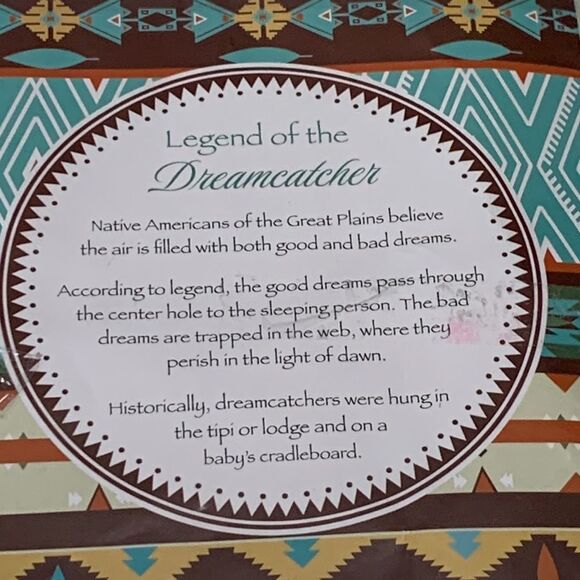 Legend of the
Dreamcatcher
Native Americans of the Great Plains believe
the air is filled with both good and bad dreams.
According to legend, the good dreams pass through
the center hole to the sleeping person. The bad
dreams are trapped in the web, where they
perish in the light of dawn.
Historically, dreamcatchers were hung in
the tipi or lodge and on a
baby's cradleboard.